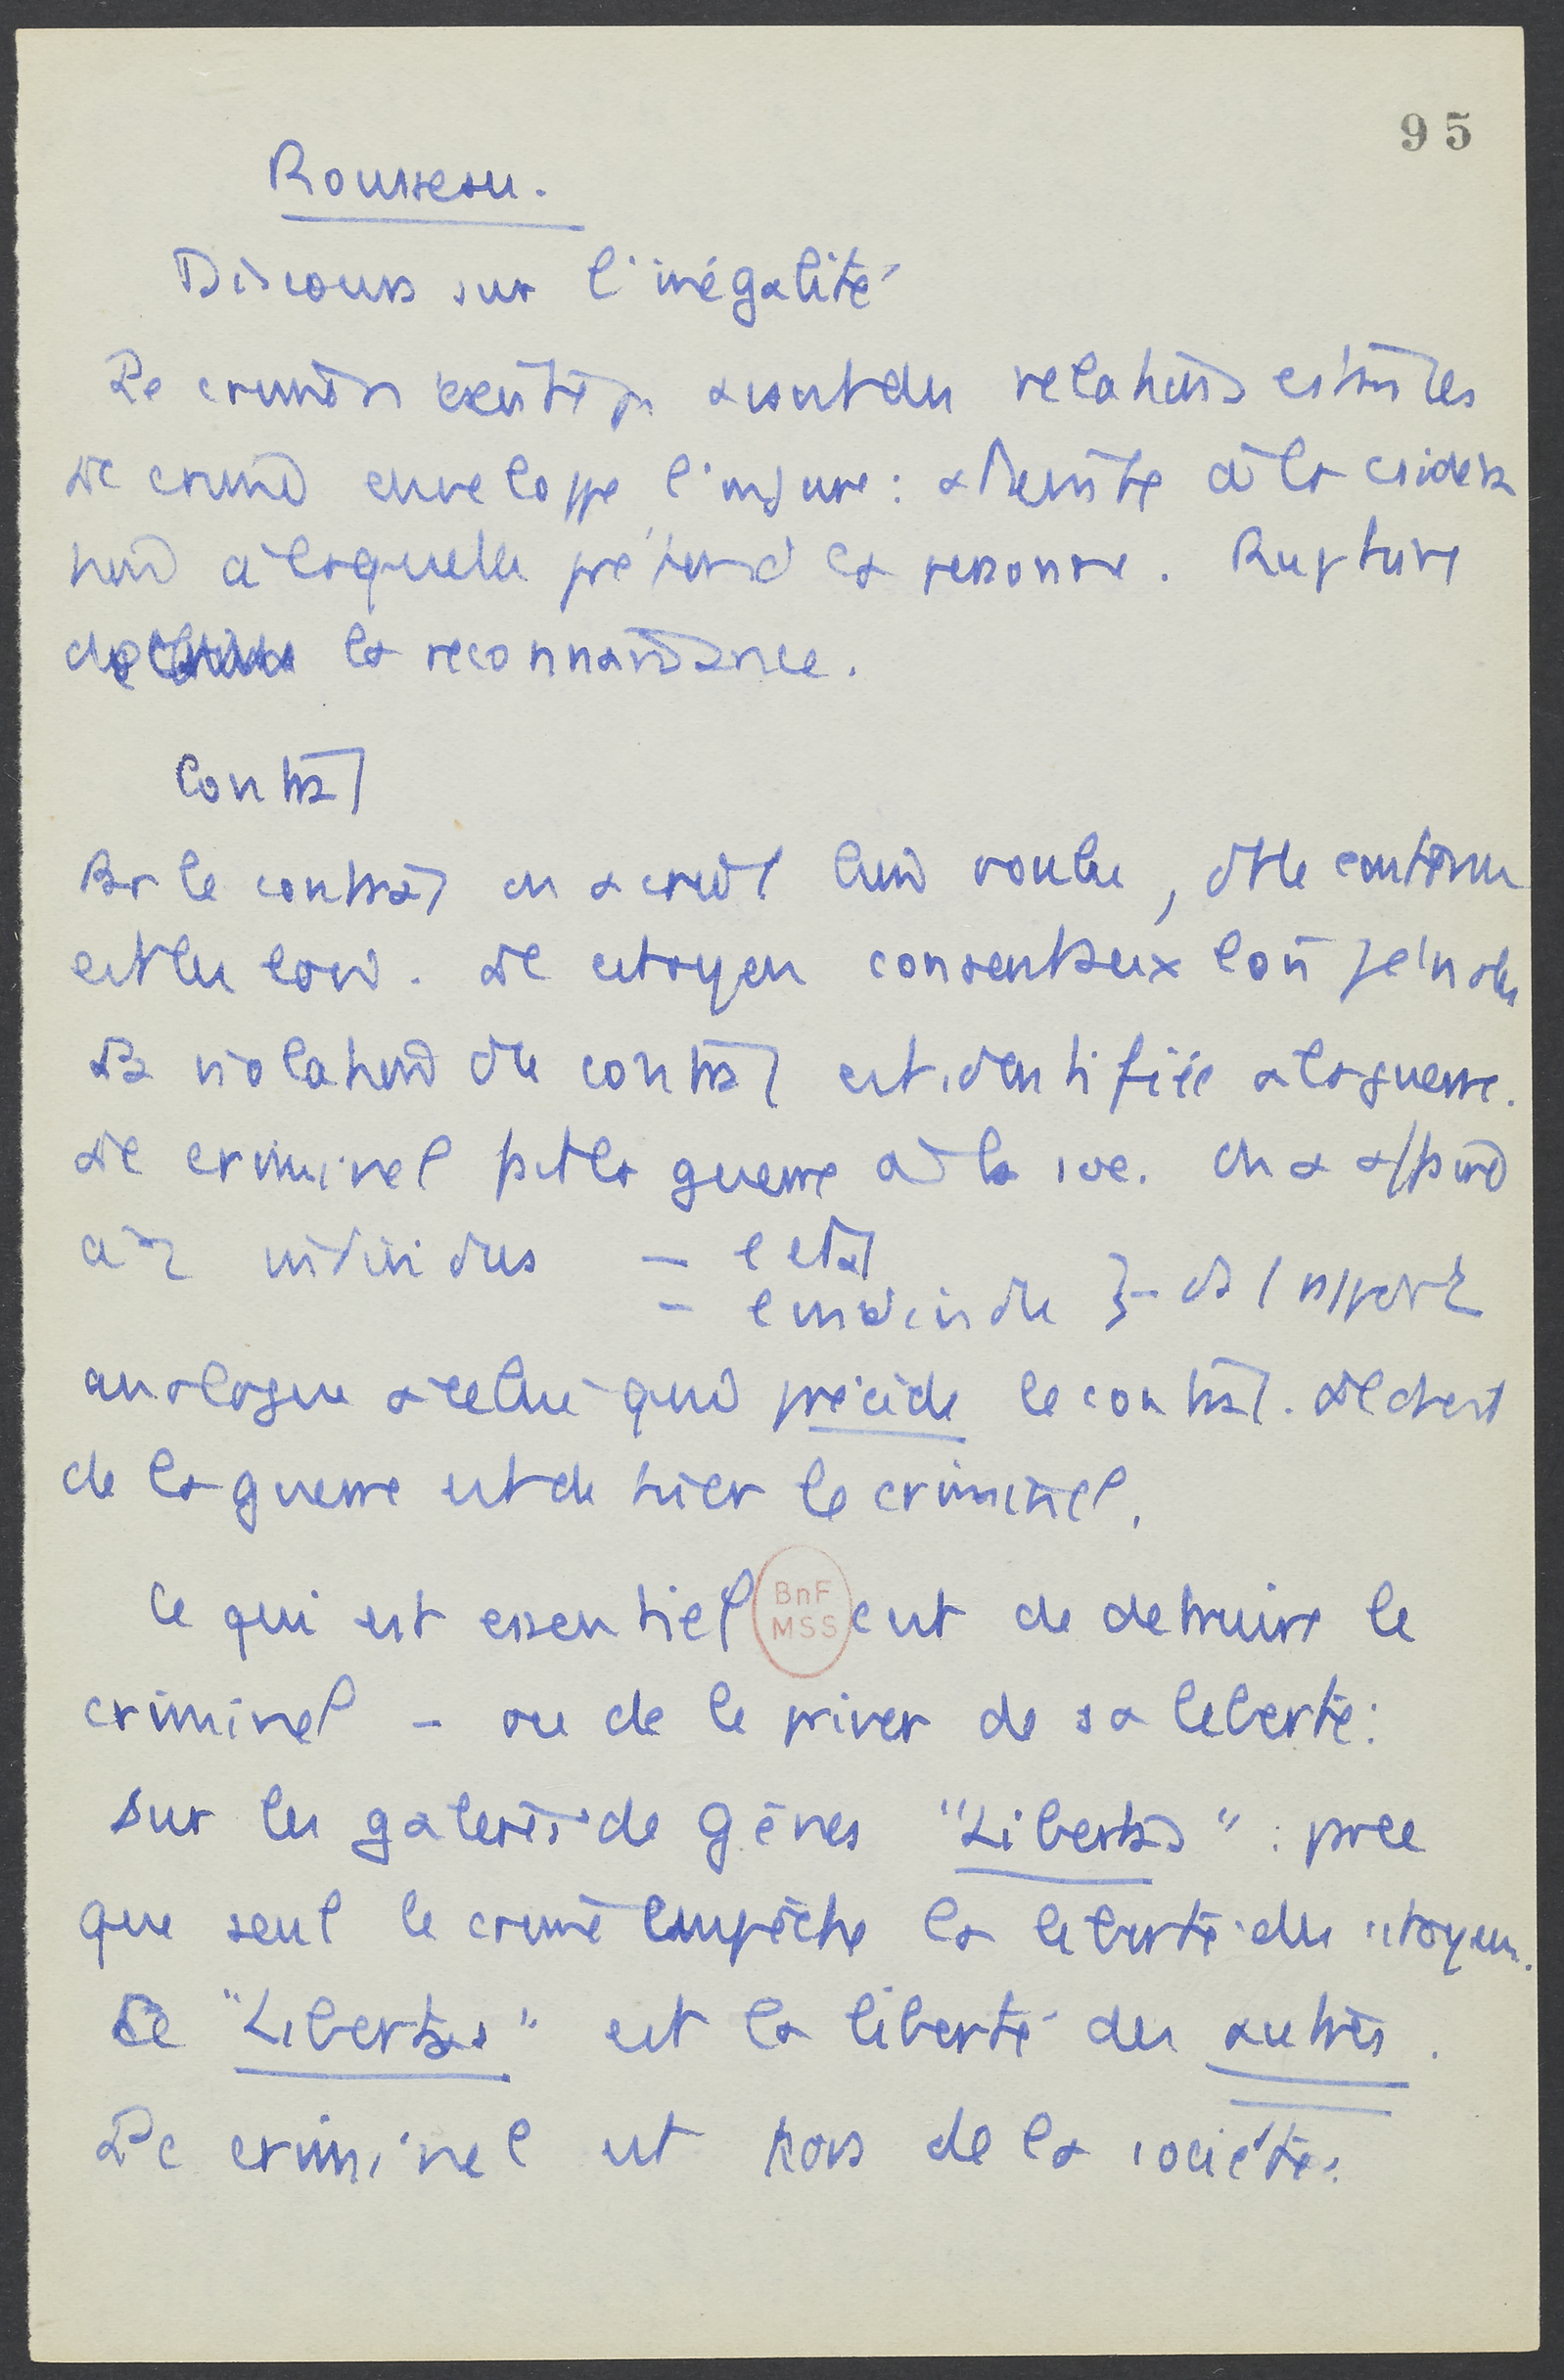 95
Rousseau.
Discours sur l'inégalité
Le crime n'existe pas avant des relations établies
Le crime enveloppe l'injure : atteinte à la considéra
tion à laquelle prétend la personne. Rupture
de la reconnaissance.
Contrat
Par le contrat on a créé voulue, et le contenu
est les lois. Le citoyen consent aux lois pénales
La violation du contrat est identifiée à la guerre.
Le criminel fait la guerre à la soc. On a affaire
à 2 individus - l'état
- l'individu } - ds 1 rapport
analogue à celui qui précède le contrat. Le droit
de la guerre est de tuer le criminel.
Ce qui est essentiel c'est de detruire le
BnF
MSS
criminel - ou de le priver de sa liberté :
sur les galères de Gênes "Libertas" : parce
que seul le crime empêche la liberté des citoyens.
Ce "Libertas" est la liberté des autres.
Le criminel est hors de la société.